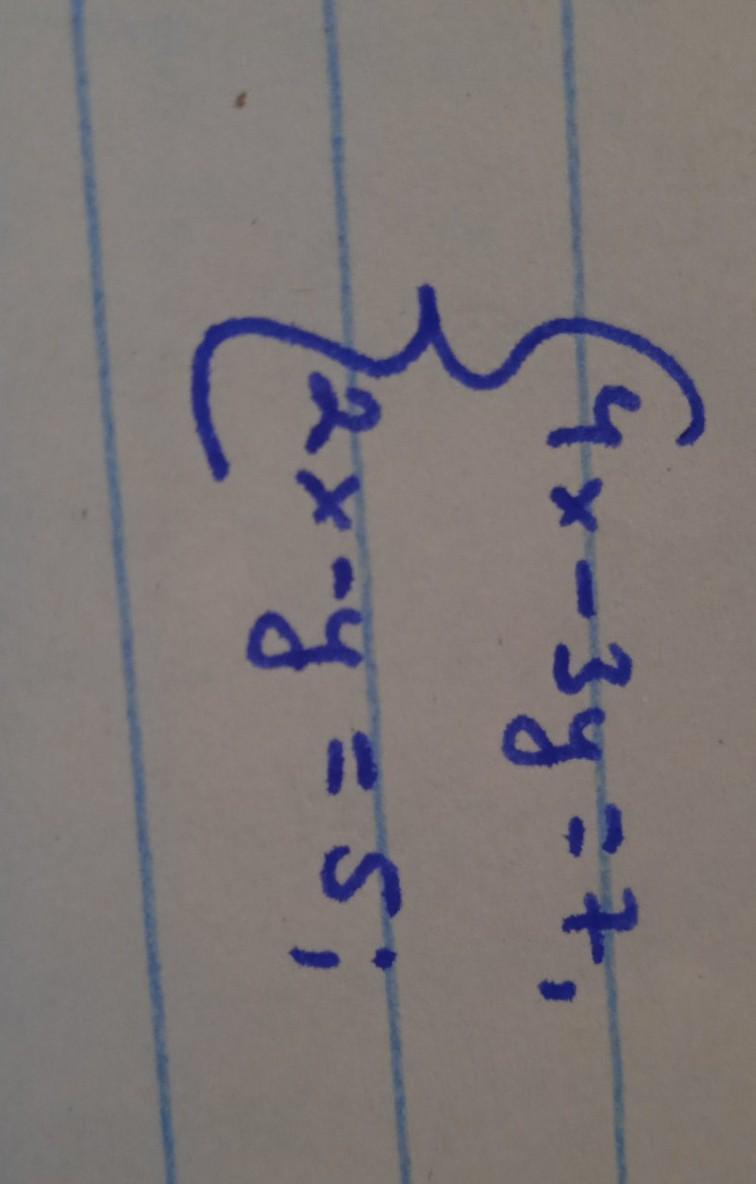 4x - 3y = 7,
2x - y = 5;